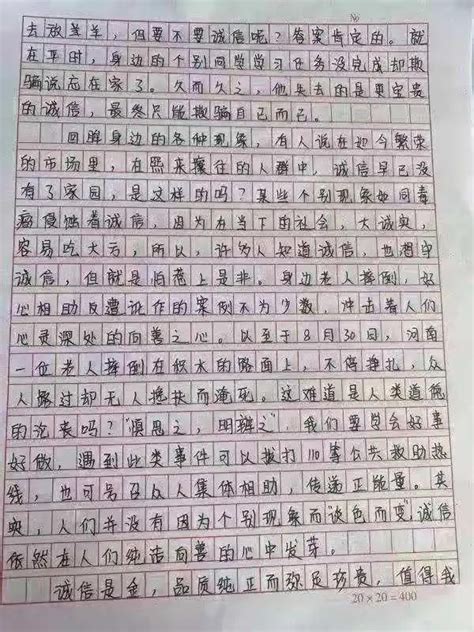 No
去放羊羊，但要不要诚信呢？答案肯定的。就
在平时，身边的个别同学学习任务没完成却欺
骗说忘在家了。久而久之，他失去的是更宝贵
的诚信，最终只能欺骗自己而已。
回眸身边的各种现象，有人说在如今繁荣
的市场里，在熙来攘往的人群中，诚信早已没
有了家园，是这样的吗？某些个别现象如同毒
病侵蚀着诚信，因为在当下的社会，大诚实，
容易吃大亏，所以，许多人知道诚信，也想守
诚信，但就是怕惹上是非。身边老人摔倒，好
心相助反遭讹作的案例不为少数，冲击着人们
心灵深处的向善之心。以至于8月30日，河南
一位老人摔倒在积水的路面上，不停挣扎，众
人掠过却无人搀扶而淹死。这难道是人类道德
的沦丧吗？“慎思之，明辨之”，我们要学会好事
好做，遇到此类事件可以拨打110等公共救助热
线，也可号召众人集体相助，传递正能量。其
实，人们并没有因为个别现象而“谈色而变”，诚信
依然在人们纯洁向善的心中发芽。
诚信是金，品质纯正而弥足珍贵，值得我
20×20=400